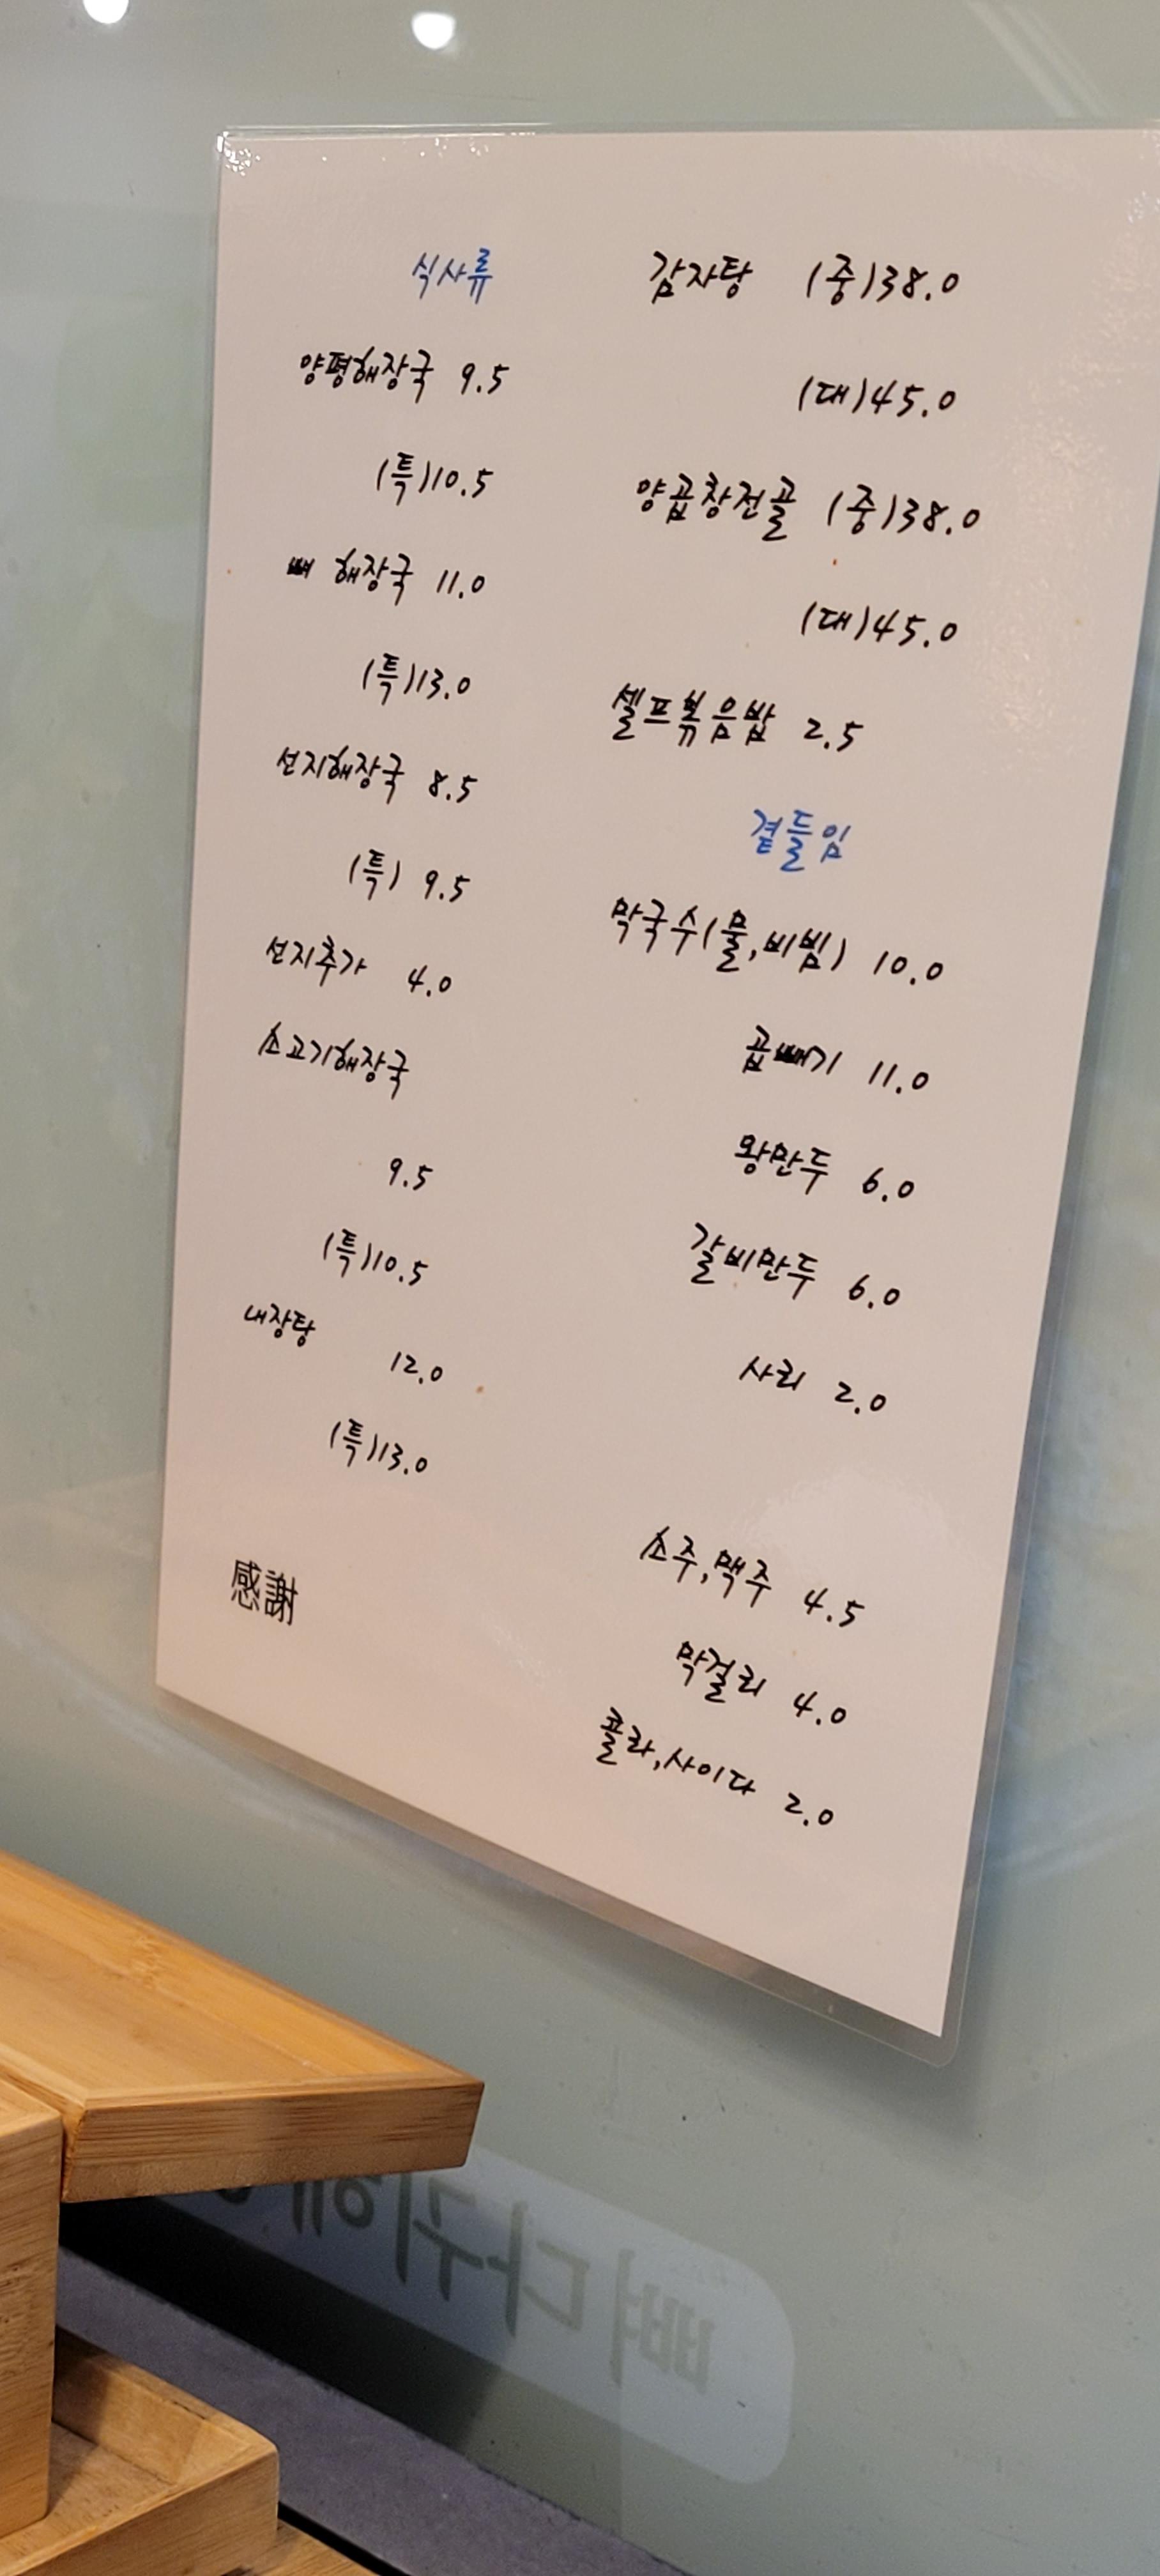 식사류
양평해장국 9.5
(특)10.5
뼈 해장국 11.0
(특)13.0
선지해장국 8.5
(특) 9.5
선지추가 4.0
소고기해장국
9.5
(특)10.5
내장탕 12.0
(특)13.0
感謝
감자탕 (중)38.0
(대)45.0
양곱창전골 (중)38.0
(대)45.0
셀프볶음밥 2.5
곁들임
막국수(물,비빔) 10.0
곱빼기 11.0
왕만두 6.0
갈비만두 6.0
사리 2.0
소주,맥주 4.5
막걸리 4.0
콜라,사이다 2.0
뼈다귀해